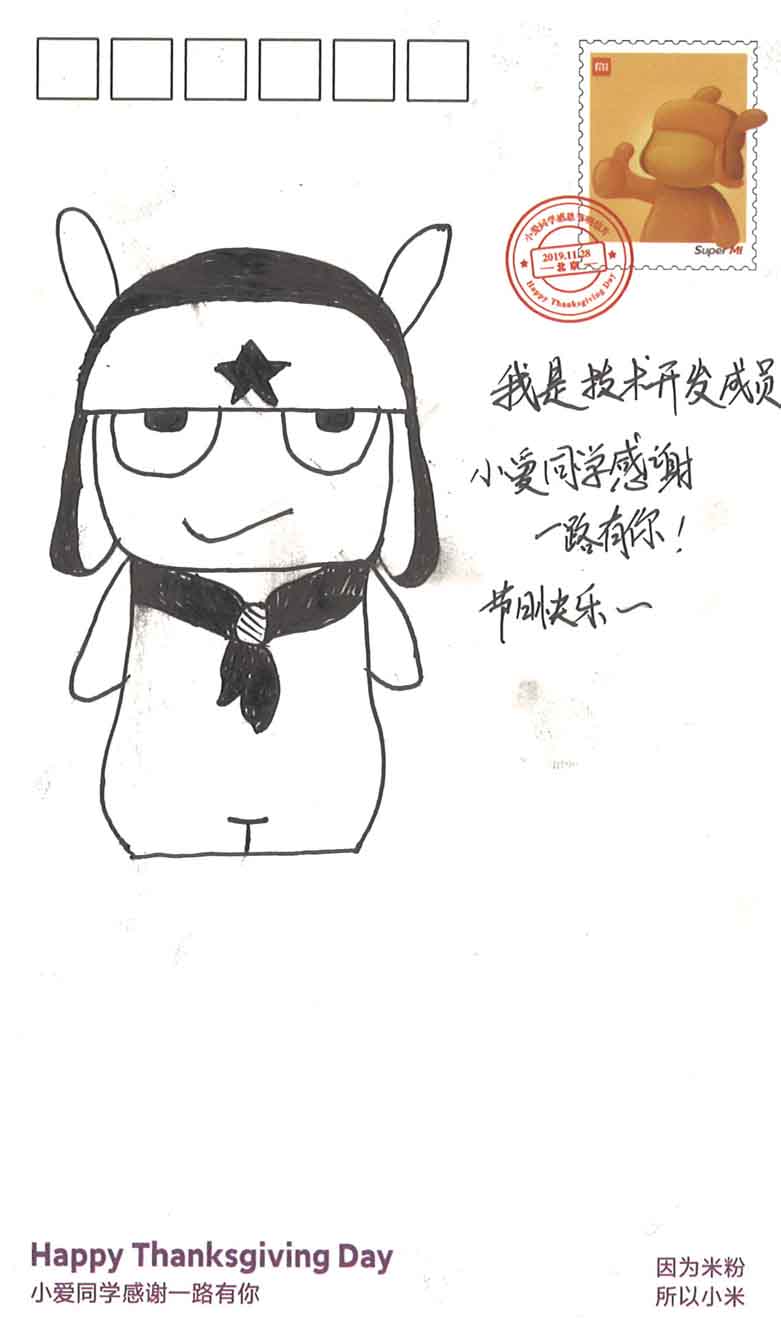 MI
Super MI
小爱同学感恩节明信片
2019.11.28
北京
Happy Thanksgiving Day
我是技术开发成员
小爱同学感谢
一路有你!
节日快乐~
Happy Thanksgiving Day
小爱同学感谢一路有你
因为米粉
所以小米